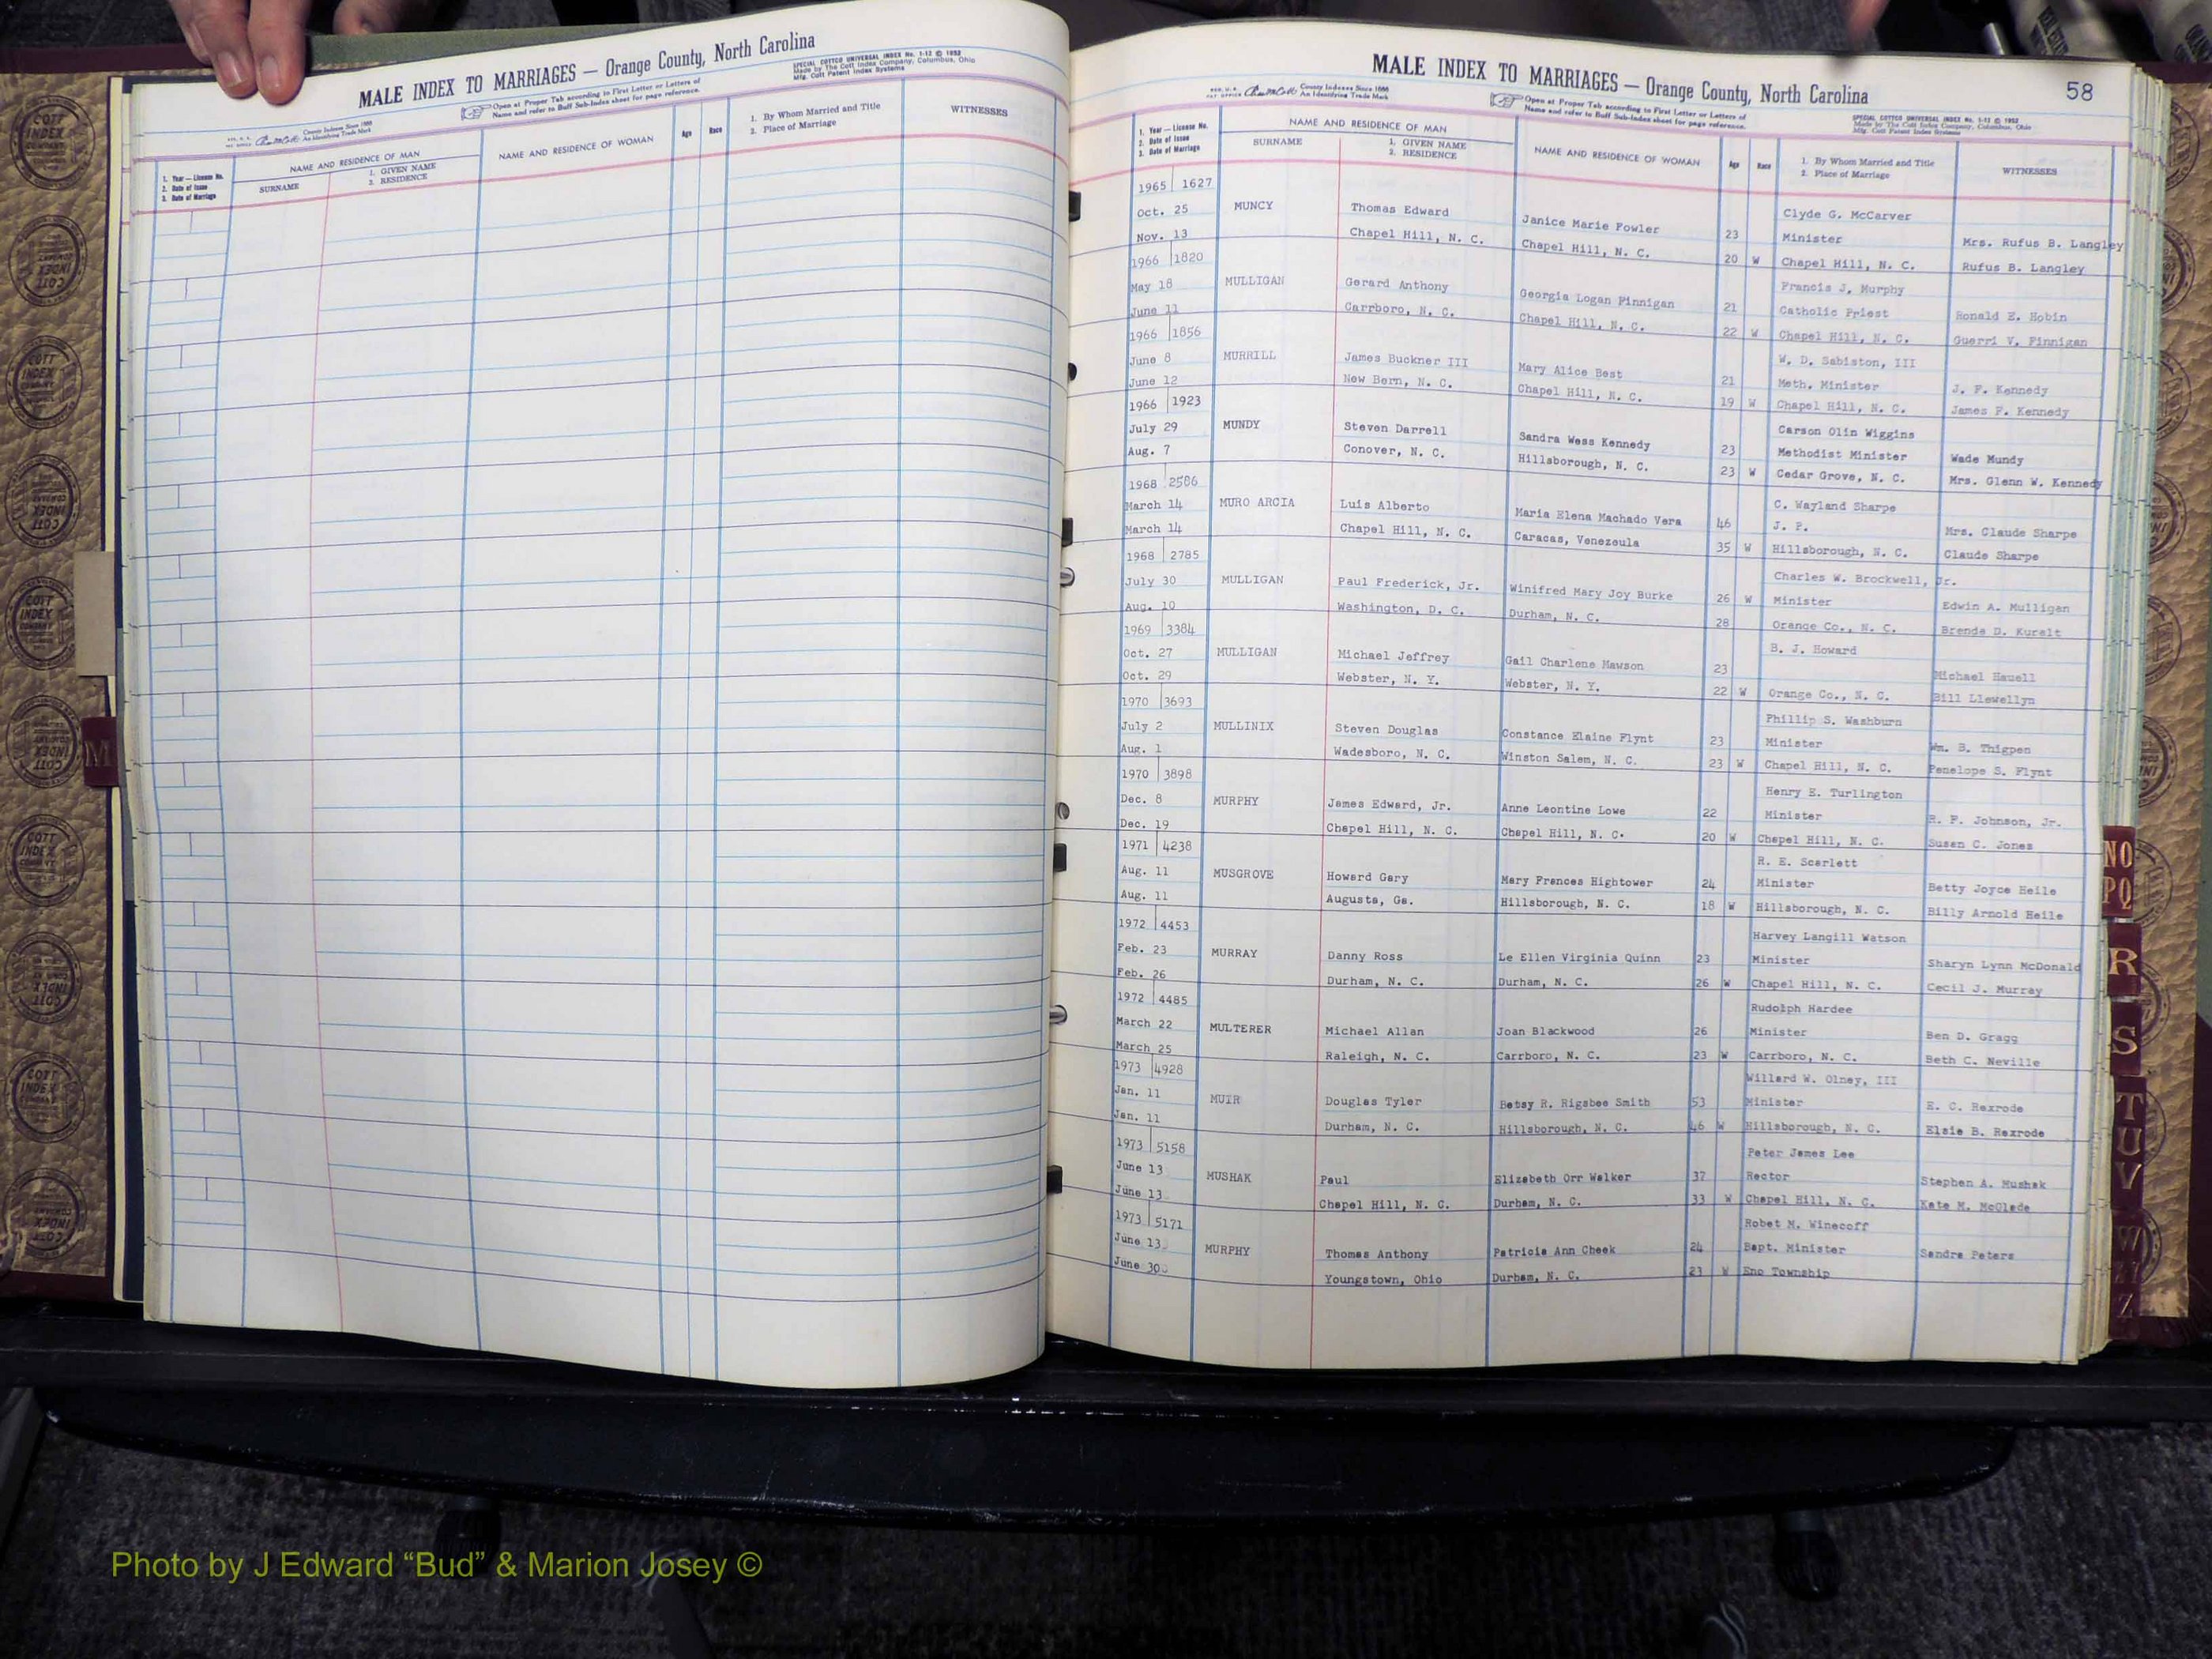 MALE INDEX TO MARRIAGES — Orange County, North Carolina
SPECIAL COTTCO UNIVERSAL INDEX No. 1-12 © 1952
Made by The Cott Index Company, Columbus, Ohio
Mfg. Cott Patent Index Systems
Open at Proper Tab according to First Letter or Letters of
Name and refer to Buff Sub-Index sheet for page reference.
County Indexes Since 1888
An Identifying Trade Mark
1. Year — License No.
2. Date of Issue
3. Date of Marriage
NAME AND RESIDENCE OF MAN
SURNAME
1. GIVEN NAME
2. RESIDENCE
NAME AND RESIDENCE OF WOMAN
Age
Race
1. By Whom Married and Title
2. Place of Marriage
WITNESSES
MALE INDEX TO MARRIAGES — Orange County, North Carolina
58
County Indexes Since 1888
An Identifying Trade Mark
Open at Proper Tab according to First Letter or Letters of
Name and refer to Buff Sub-Index sheet for page reference.
SPECIAL COTTCO UNIVERSAL INDEX No. 1-12 © 1952
Made by The Cott Index Company, Columbus, Ohio
Mfg. Cott Patent Index Systems
1. Year — License No.
2. Date of Issue
3. Date of Marriage
NAME AND RESIDENCE OF MAN
SURNAME
1. GIVEN NAME
2. RESIDENCE
NAME AND RESIDENCE OF WOMAN
Age
Race
1. By Whom Married and Title
2. Place of Marriage
WITNESSES
1965 1627
Oct. 25 MUNCY Thomas Edward Janice Marie Fowler 23 Clyde G. McCarver
Nov. 13 Chapel Hill, N. C. Chapel Hill, N. C. 20 W Minister Mrs. Rufus B. Langley
Chapel Hill, N. C. Rufus B. Langley
1966 1820 Francis J. Murphy
May 18 MULLIGAN Gerard Anthony Georgia Logan Finnigan 21 Catholic Priest Ronald E. Hobin
June 11 Carrboro, N. C. Chapel Hill, N. C. 22 W Chapel Hill, N. C. Guerri V. Finnigan
1966 1856 W. D. Sabiston, III
June 8 MURRILL James Buckner III Mary Alice Best 21 Meth. Minister J. F. Kennedy
June 12 New Bern, N. C. Chapel Hill, N. C. 19 W Chapel Hill, N. C. James F. Kennedy
1966 1923 Carson Olin Wiggins
July 29 MUNDY Steven Darrell Sandra Wess Kennedy 23 Methodist Minister Wade Mundy
Aug. 7 Conover, N. C. Hillsborough, N. C. 23 W Cedar Grove, N. C. Mrs. Glenn W. Kennedy
1968 2586 C. Wayland Sharpe
March 14 MURO ARCIA Luis Alberto Maria Elena Machado Vera 46 J. P. Mrs. Claude Sharpe
March 14 Chapel Hill, N. C. Caracas, Venezeula 35 W Hillsborough, N. C. Claude Sharpe
1968 2785 Charles W. Brockwell, Jr.
July 30 MULLIGAN Paul Frederick, Jr. Winifred Mary Joy Burke 26 W Minister Edwin A. Mulligan
Aug. 10 Washington, D. C. Durham, N. C. 28 Orange Co., N. C. Brenda D. Kuralt
1969 3384 B. J. Howard
Oct. 27 MULLIGAN Michael Jeffrey Gail Charlene Mawson 23 Michael Hauell
Oct. 29 Webster, N. Y. Webster, N. Y. 22 W Orange Co., N. C. Bill Llewellyn
1970 3693 Phillip S. Washburn
July 2 MULLINIX Steven Douglas Constance Elaine Flynt 23 Minister Wm. B. Thigpen
Aug. 1 Wadesboro, N. C. Winston Salem, N. C. 23 W Chapel Hill, N. C. Penelope S. Flynt
1970 3898 Henry E. Turlington
Dec. 8 MURPHY James Edward, Jr. Anne Leontine Lowe 22 Minister R. F. Johnson, Jr.
Dec. 19 Chapel Hill, N. C. Chapel Hill, N. C. 20 W Chapel Hill, N. C. Susan C. Jones
1971 4238 R. E. Scarlett
Aug. 11 MUSGROVE Howard Gary Mary Frances Hightower 24 Minister Betty Joyce Heile
Aug. 11 Augusta, Ga. Hillsborough, N. C. 18 W Hillsborough, N. C. Billy Arnold Heile
1972 4453 Harvey Langill Watson
Feb. 23 MURRAY Danny Ross Le Ellen Virginia Quinn 23 Minister Sharyn Lynn McDonald
Feb. 26 Durham, N. C. Durham, N. C. 26 W Chapel Hill, N. C. Cecil J. Murray
1972 4485 Rudolph Hardee
March 22 MULTERER Michael Allan Joan Blackwood 26 Minister Ben D. Gragg
March 25 Raleigh, N. C. Carrboro, N. C. 23 W Carrboro, N. C. Beth C. Neville
1973 4928 Willard W. Olney, III
Jan. 11 MUIR Douglas Tyler Betsy R. Rigsbee Smith 53 Minister E. C. Rexrode
Jan. 11 Durham, N. C. Hillsborough, N. C. 46 W Hillsborough, N. C. Elsie B. Rexrode
1973 5158 Peter James Lee
June 13 MUSHAK Paul Elizabeth Orr Walker 37 Rector Stephen A. Mushak
June 13 Chapel Hill, N. C. Durham, N. C. 33 W Chapel Hill, N. C. Kate M. McGlade
1973 5171 Robet M. Winecoff
June 13 MURPHY Thomas Anthony Patricia Ann Cheek 24 Bapt. Minister Sandra Peters
June 30 Youngstown, Ohio Durham, N. C. 23 W Eno Township
M
NO
PQ
R
S
T
U
V
W
Z
COTT
INDEX
COMPANY
Photo by J Edward “Bud” & Marion Josey ©